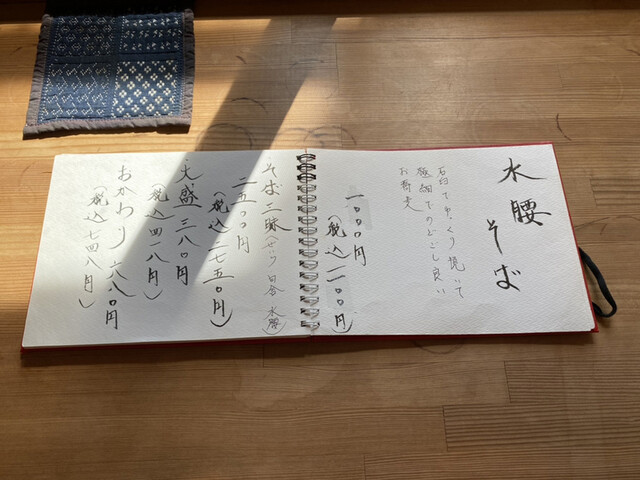 水腰そば
石臼でゆっくり挽いて
極細でのどごし良い
お蕎麦
一〇〇〇円
(税込一一〇〇円)
そば三昧(せいろ 田舎 水腰)
二五〇〇円
(税込二七五〇円)
大盛 三八〇円
(税込四一八円)
おかわり 六八〇円
(税込七四八円)